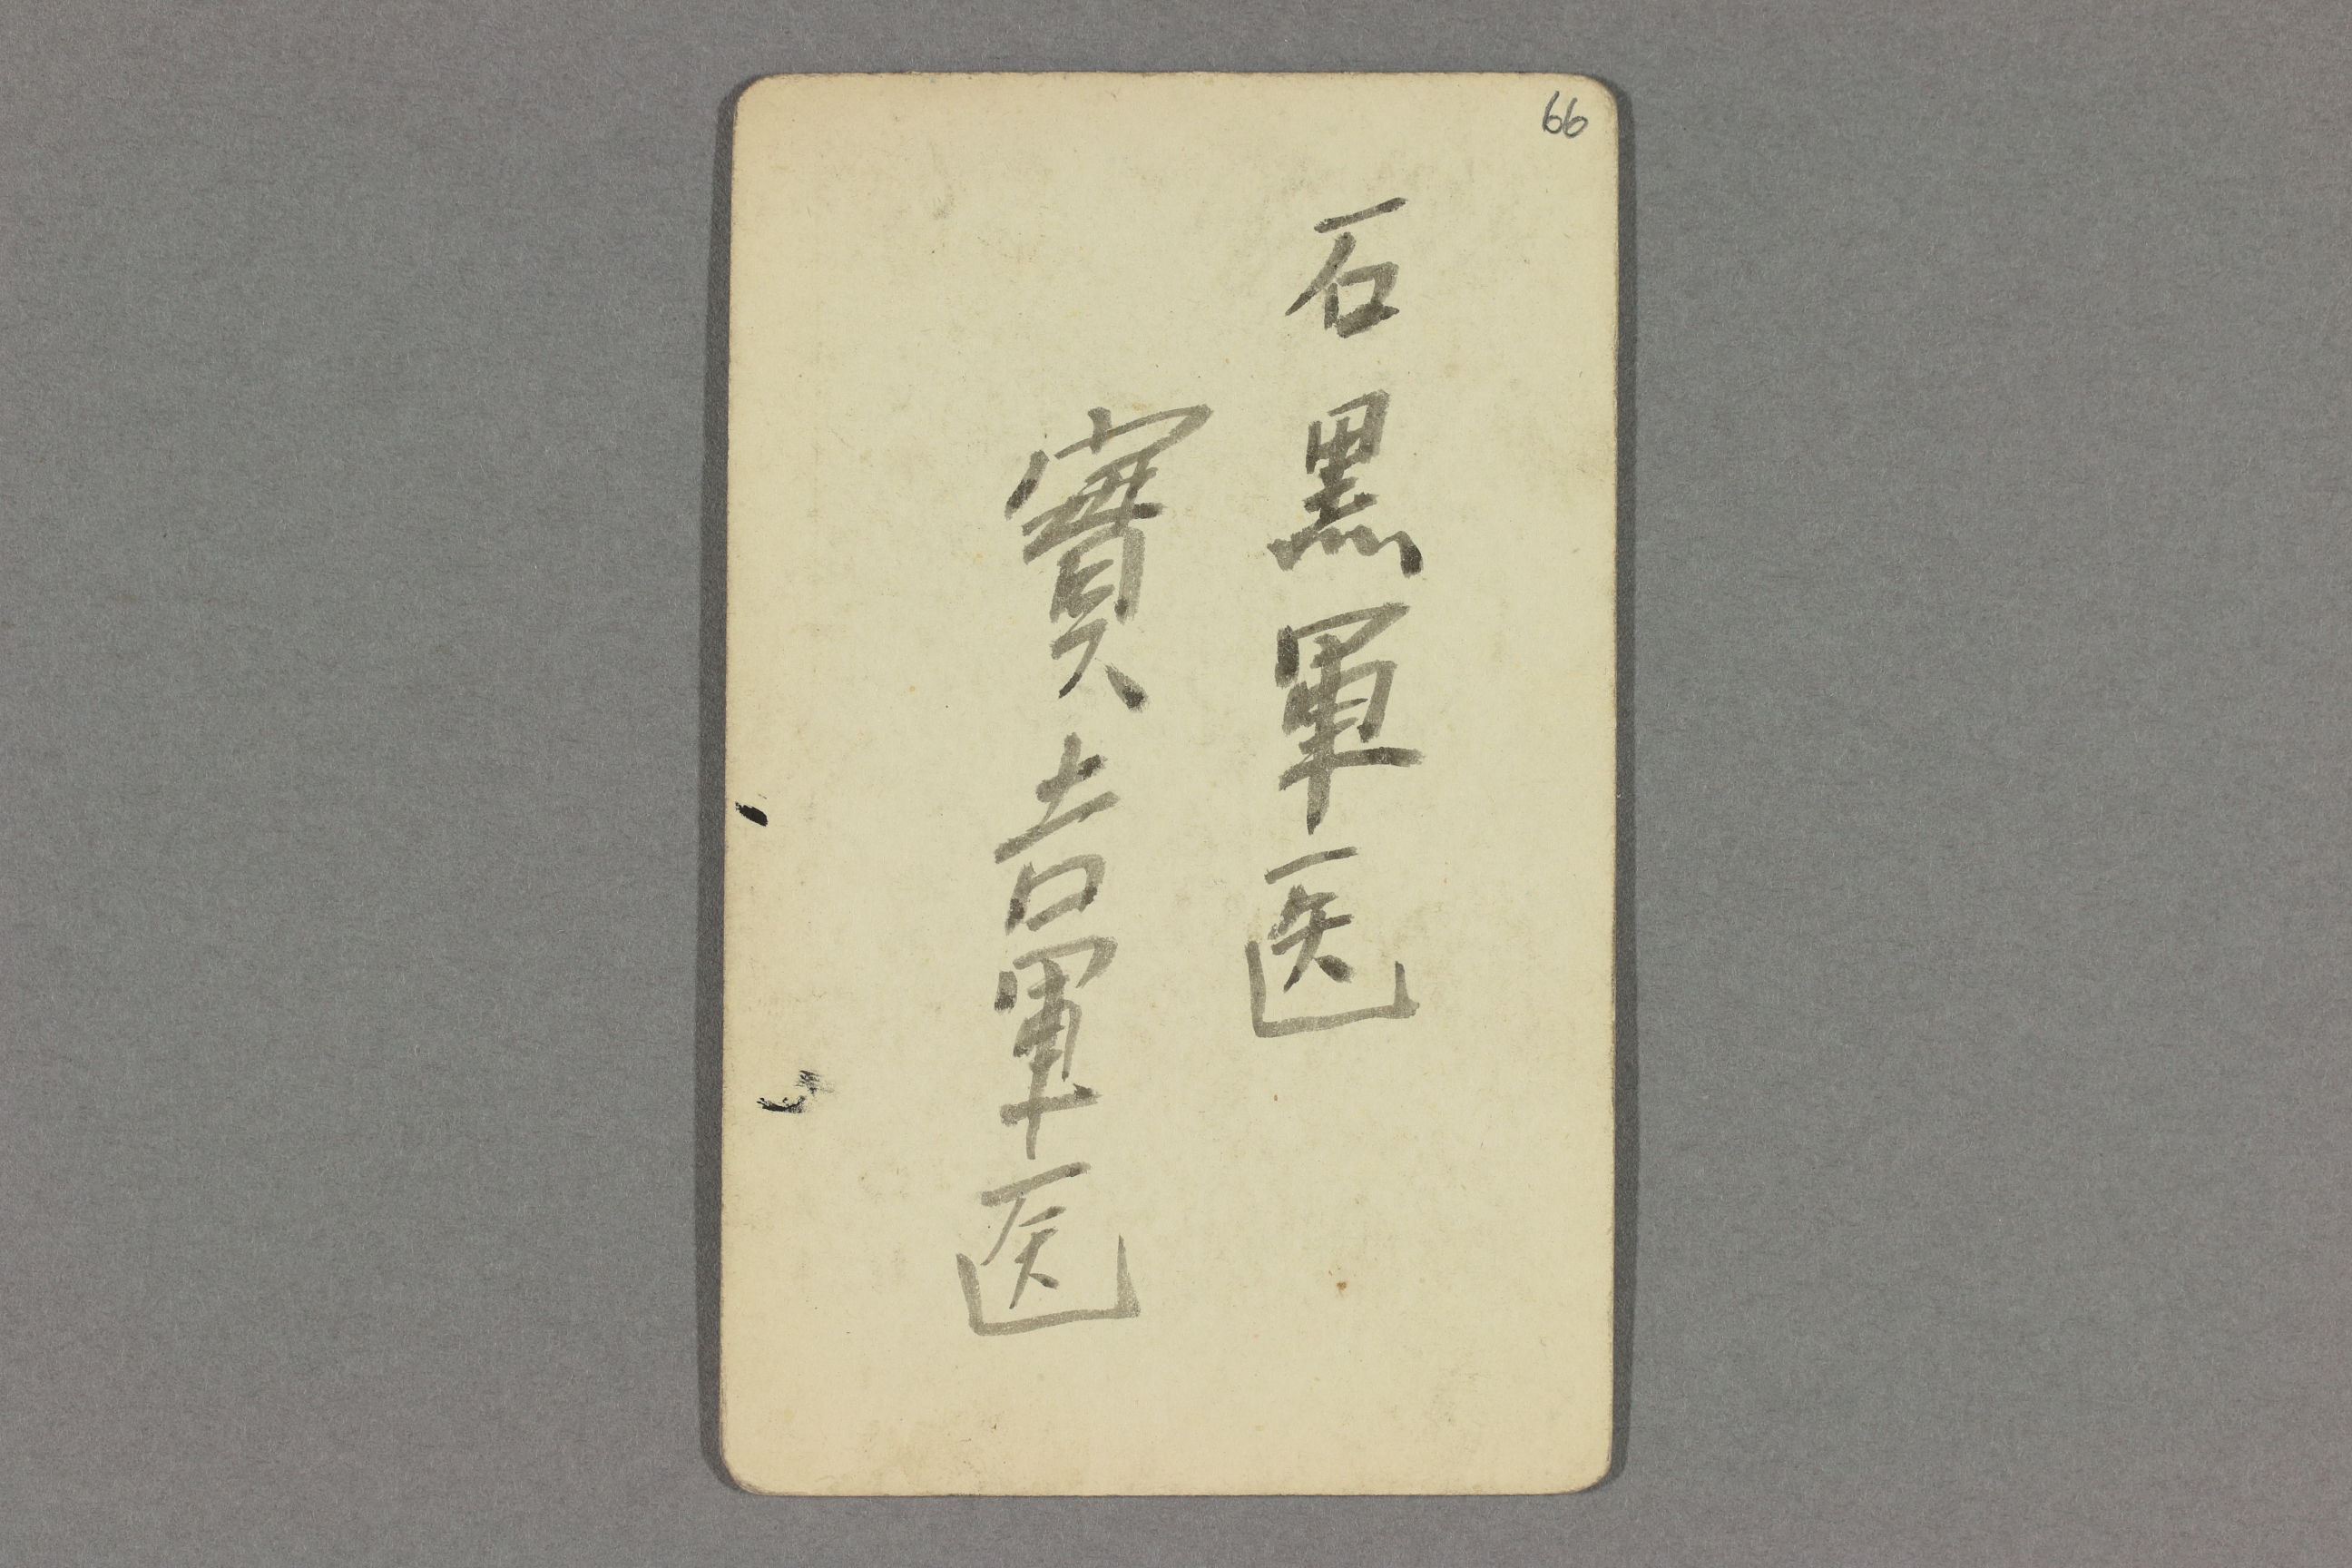 66
石黒軍医
實吉軍医